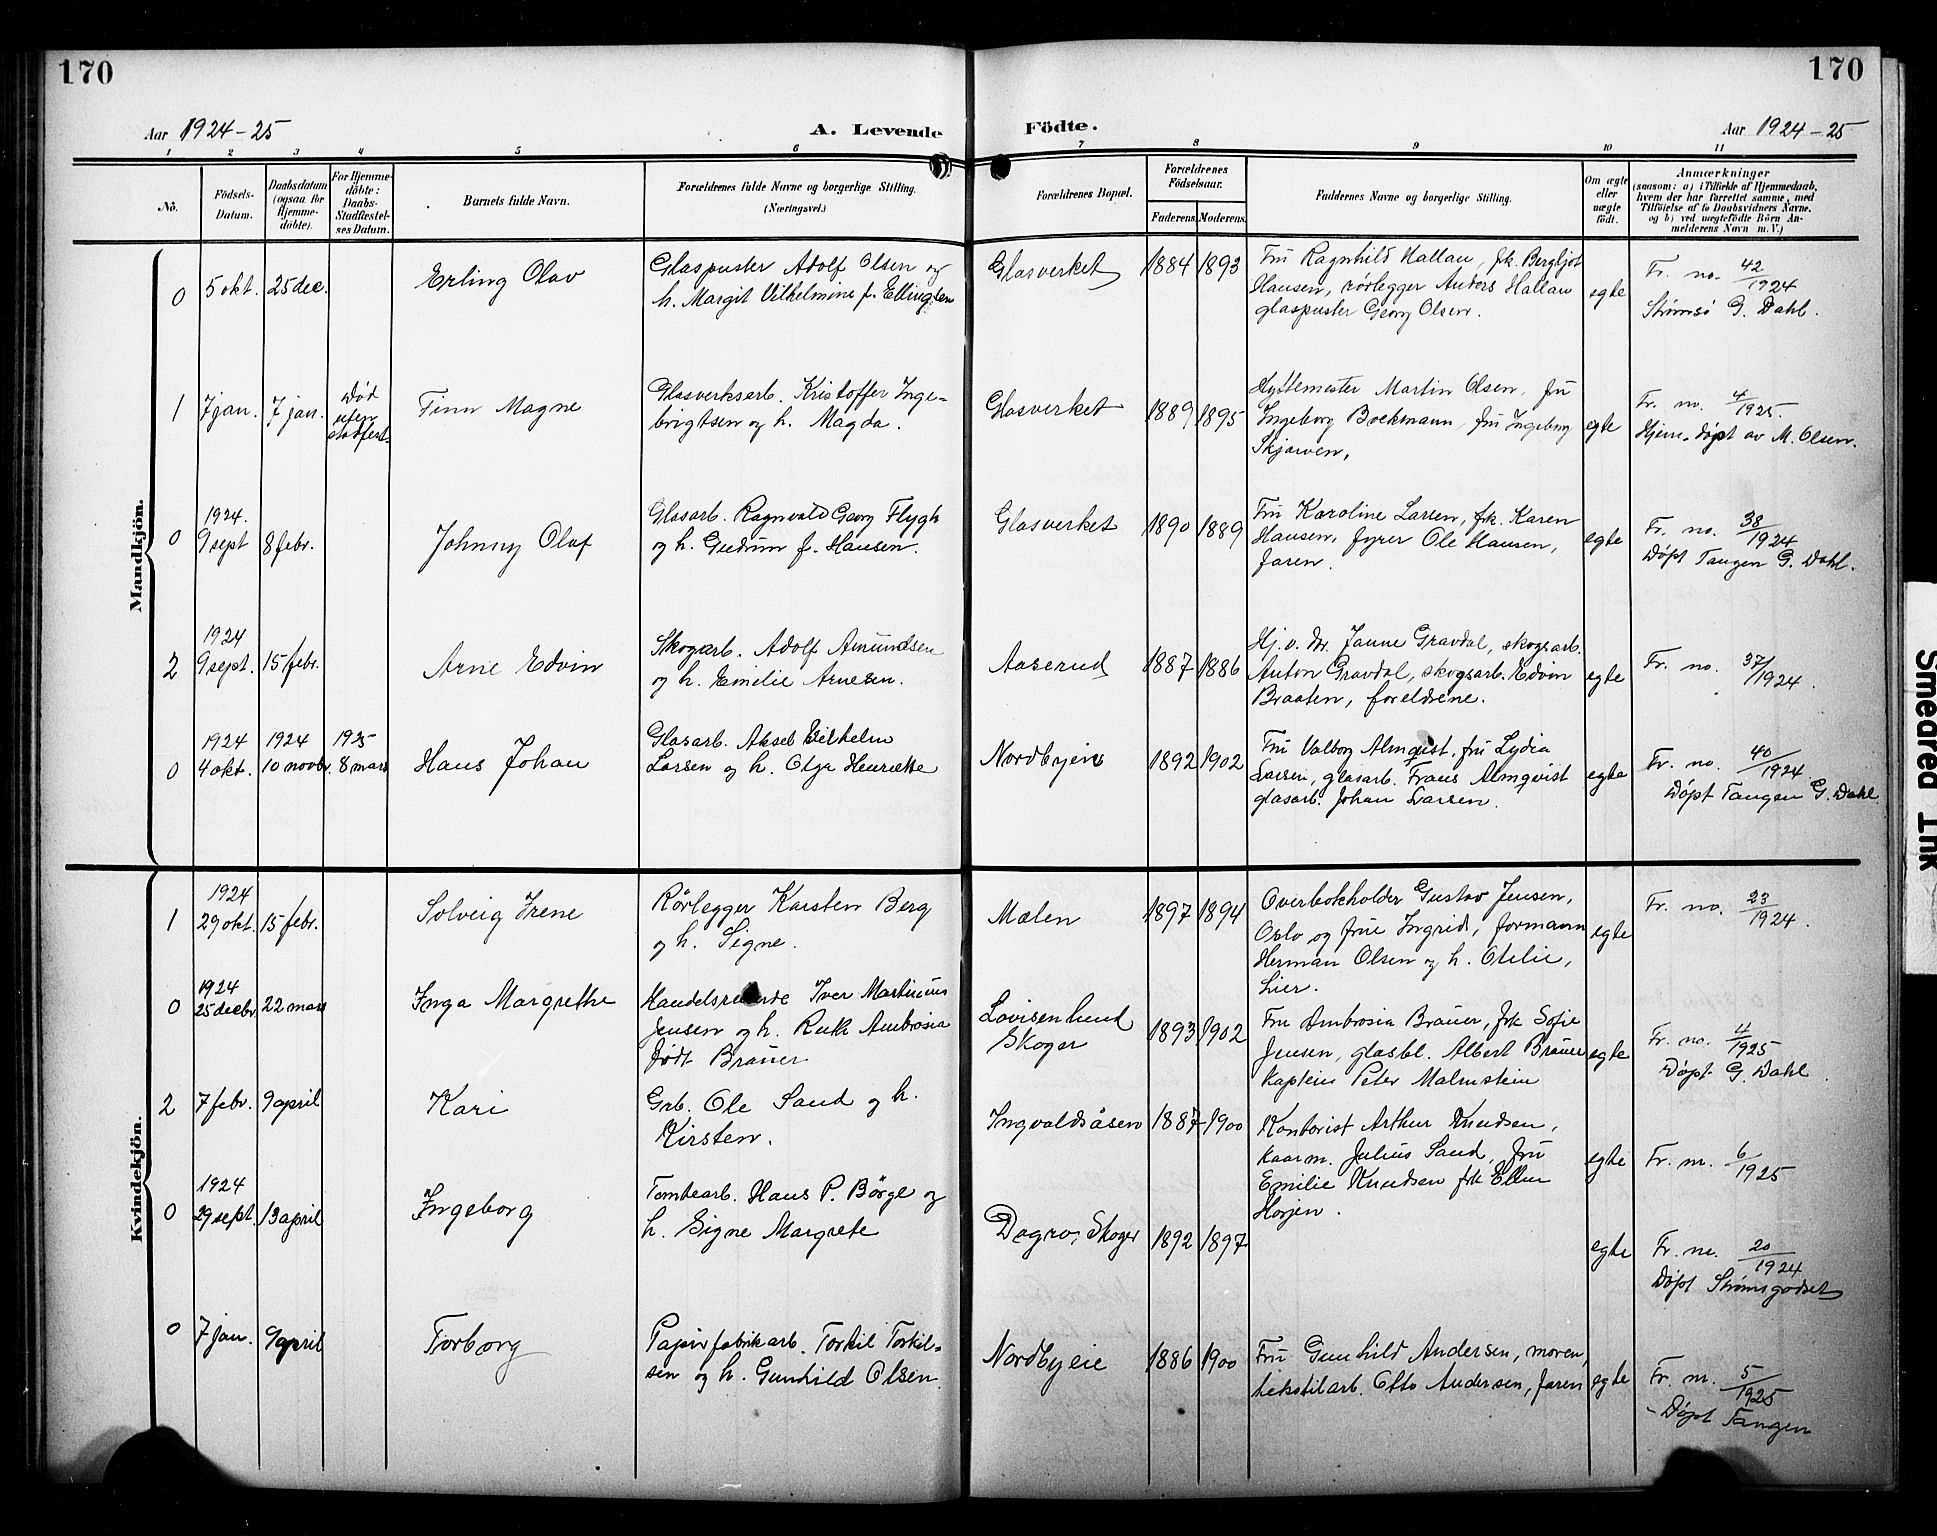 170
170
Aar 1924-25
A. Levende Födte.
Aar 1924-25
1 2 3 4 5 6 7 8 9 10 11
No.
Födsels-
Datum.
Daabsdatum
(ogsaa for
Hjemme-
döbte).
For Hjemme-
döbte:
Daabs-
Stadfæstel-
ses Datum.
Barnets fulde Navn.
Forældrenes fulde Navne og borgerlige Stilling.
(Næringsvei.)
Forældrenes Bopæl.
Forældrenes
Födselsaar.
Faderens. Moderens.
Faddernes Navne og borgerlige Stilling.
Om ægte
eller
uægte
födt.
Anmærkninger
(saasom: a) i Tilfælde af Hjemmedaab,
hvem der har forrettet samme, med
Tilföielse af to Daabsvidners Navne,
og b) ved uægtefödte Börn An-
melderens Navn m. V.)
Mandkjön.
0 5 okt. 25 dec. Erling Olav
Glaspuster Adolf Olsen og
h. Margit Vilhelmine f. Ellingsen
Glasverket 1884 1893
Fru Ragnhild Hallau, frk. Bergljot
Hansen, rörlegger Anders Hallau
glaspuster Georg Olsen.
egte
Fr. no. 42/1924
Strömsö G. Dahl.
1 7 jan. 7 jan.
Död
uten
stadfest.
Finn Magne
Glasverksarb. Kristoffer Inge-
brigtsen og h. Magda.
Glasverket 1889 1895
Hyttemester Martin Olsen, fru
Ingeborg Boekmann, fru Ingeborg
Skjarven,
egte
Fr. no. 4/1925.
Hjem. döpt av M. Olsen.
1924.
0 9 sept 8 febr. Johnny Olaf
Glasarb. Ragnvald Georg Flygh
og h. Gudrun f. Hansen.
Glasverket 1890 1889
Fru Karoline Larsen, frk. Karen
Hansen, fyrer Ole Hansen,
faren.
egte
Fr. no. 38/1924
Döpt Tangen G. Dahl.
1924
2 9 sept. 15 febr. Arne Edvin
Skogarb. Adolf Amundsen
og h. Emilie Arnesen.
Aaserud 1887 1886
Hj. v. dr. Janne Gravdal, skogsarb.
Anton Gravdal, skogsarb. Edvin
Braaten, foreldrene.
egte
Fr. no. 37/1924.
1924 1924 1925
0 4 okt. 10 novbr. 8 mars Hans Johan
Glasarb. Aksel Vilhelm
Larsen og h. Olga Henriette
Nordbyeie 1892 1902
Fru Valborg Almqvist, fru Lydia
Larsen, glasarb. Frans Almqvist
glasarb. Johan Larsen.
egte
Fr. no. 40/1924.
Döpt Tangen G. Dahl
Kvindekjön.
1924
1 29 okt. 15 febr. Solveig Irene
Rörlegger Karsten Berg
og h. Signe.
Mælen 1897 1894
Overbokholder Gustav Jensen,
Oslo og frue Ingrid, formann
Herman Olsen og h. Otilie,
Lier.
egte
Fr. no. 23/1924.
1924
0 25 decbr. 22 mars Inga Margrethe
Handelsreisende Iver Martinius
Jensen og h. Ruth Ambrosia
födt Braüer
Lovisenlund
Skoger
1893 1902
Fru Ambrosia Braüer, frk Sofie
Jensen, glasbl. Albert Braüer
kaptein Peter Malmstein
egte
Fr. no. 4/1925
Döpt G. Dahl
2 7 febr. 9 april Kari
Grb. Ole Sand og h.
Kirsten.
Ingvaldsåsen 1887 1900
Kontorist Arthur Knudsen,
kaarm. Julius Sand, fru
Emilie Knudsen frk Ellen
Horjen.
egte
Fr. nr. 6/1925
1924
0 29 sept. 13 april Ingeborg
Tomtearb. Hans P. Börge og
h. Signe Margrete
Dagrov, Skoger 1892 1897
egte
Fr. nr. 20/1924
Döpt Strömsgodset
0 7 jan. 9 april Torborg
Papirfabrikarb. Torkil Torkil-
sen og h. Gunhild Olsen
Nordbyeie 1886 1900
Fru Gunhild Andersen, moren,
tekstilarb. Otto Andersen, faren
egte
Fr. nr. 5/1925
- Döpt Tangen
Smeared Ink